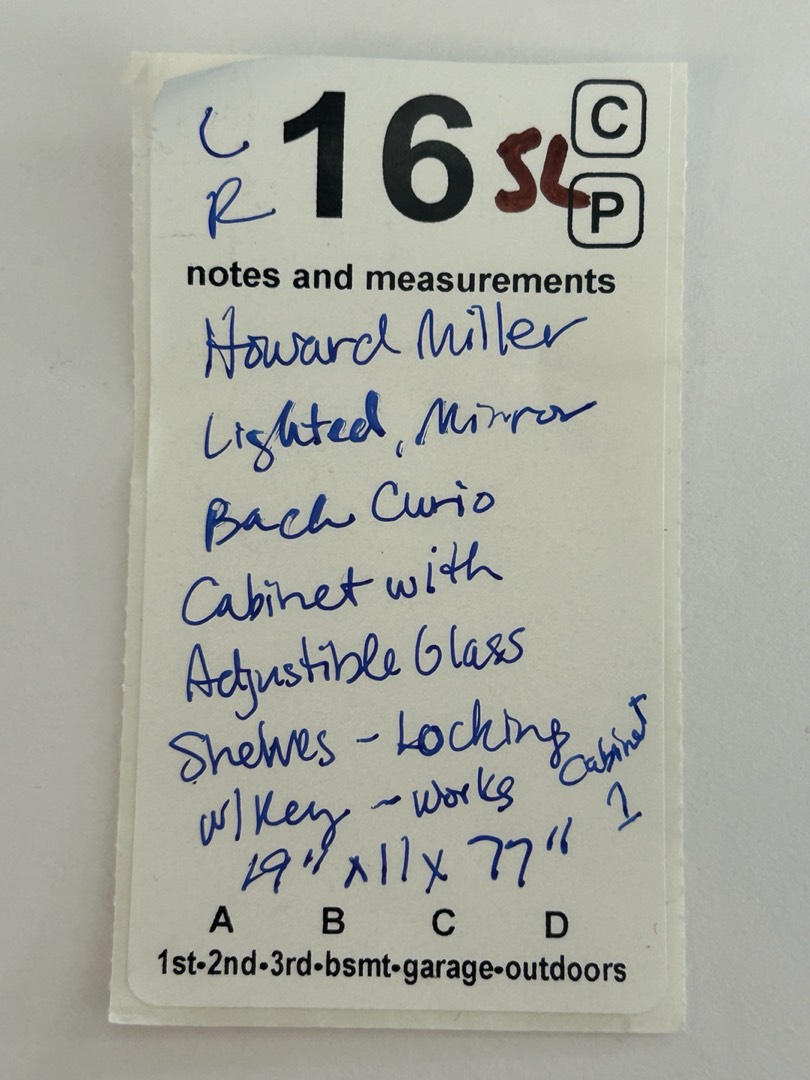 L 16 SL C
R P
notes and measurements
Howard Miller
Lighted, Mirror
Back Curio
Cabinet with
Adjustible Glass
Shelves - Locking
w/ Key - works
Cabinet
1
19" x 11 x 77"
A B C D
1st•2nd•3rd•bsmt•garage•outdoors